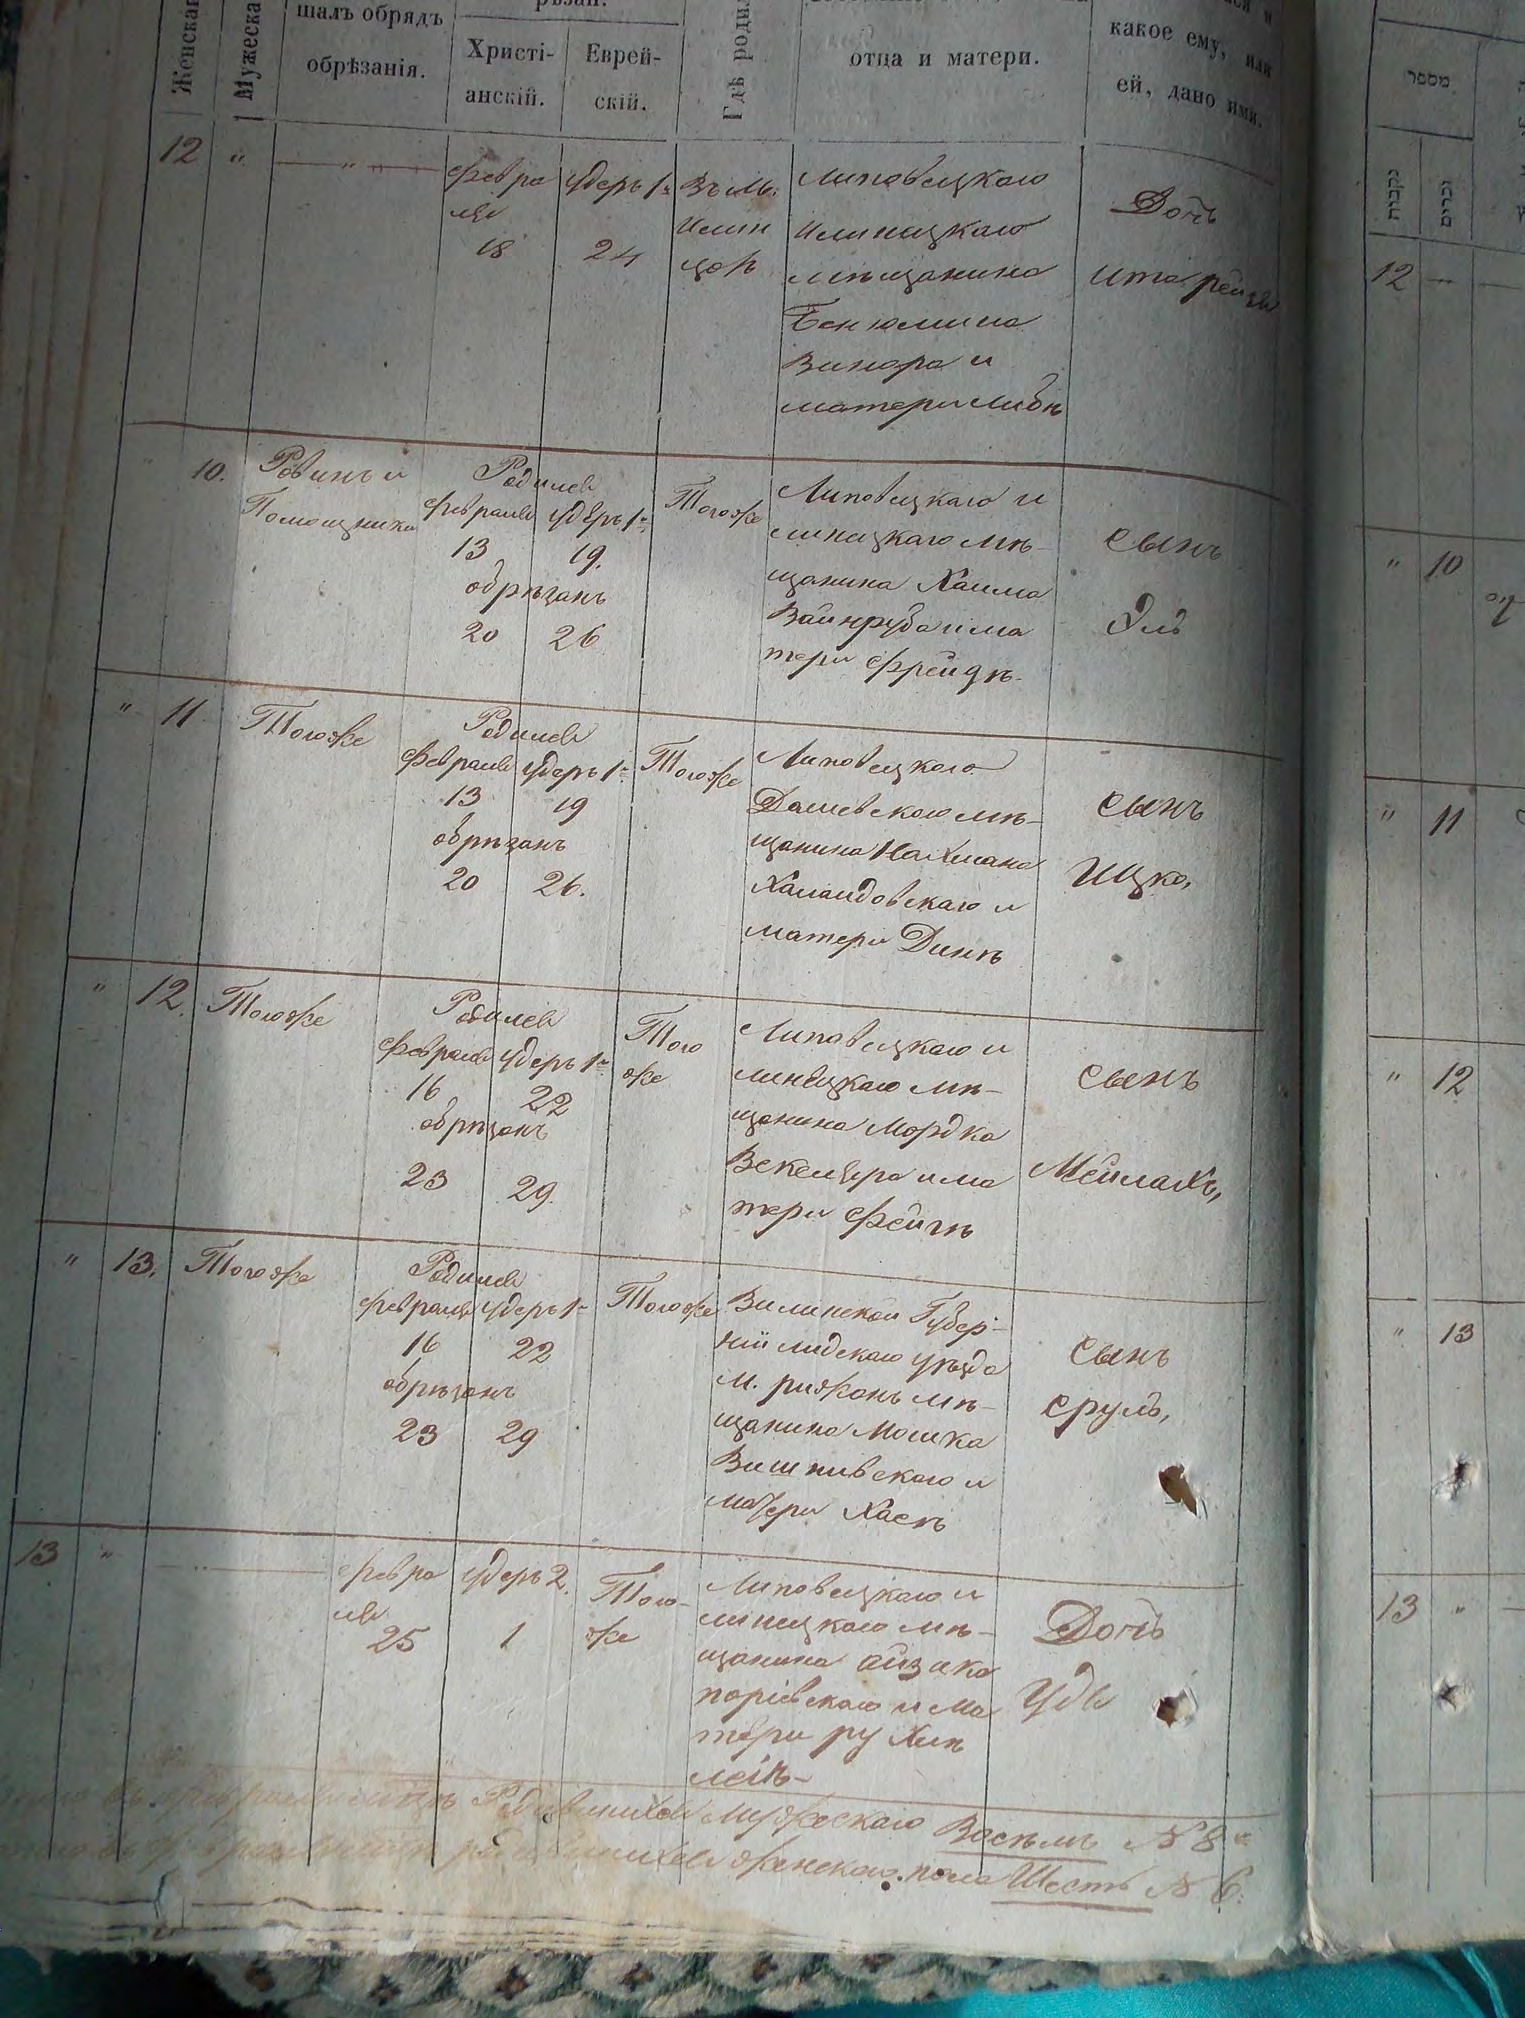 Женска
Мужеска
шалъ обрядъ
обрѣзанія.
рѣзан.
Христі-
анскій.
Еврей-
скій.
Гдѣ родил
отца и матери.
какое ему, или
ей, дано имя.
12 " — " —
февра
ля
18
Удеръ 1й
24
Въ м.
Илин
цахъ
Липовецкаго
Илинецкаго
мѣщанина
Бенюмина
Винора и
матери Либѣ
Дочь
Ита рейзя
10.
Ровинъ и
Помощника
Родился
февраля Удеръ 1й
13 19.
обрѣзанъ
20 26
Тогоже
Липовецкаго и
линецкаго мѣ-
щанина Хаима
Вайнруба и ма
тери Фрейдѣ-
Сынъ
Эль
" 11
Тогоже
Родился
февраля Удеръ 1й
13 19
обрѣзанъ
20 26.
Тогоже
Липовецкого
Дашевскаго мѣ-
щанина Нахмана
Халаидовскаго и
матери Динѣ
Сынъ
Ицко,
" 12.
Тогоже
Родился
февраля Удеръ 1й
16 22
обрѣзанъ
23 29
Того
же
Липовецкаго и
линецкаго мѣ-
щанина Мордка
Векслера и ма
тери Фейгѣ
Сынъ
Мейлахъ,
" 13.
Тогоже
Родился
февраля Удеръ 1й
16 22
обрѣзанъ
23 29
Тогоже
Виленской Губер-
ніи лидскаго уѣзда
м. рожанъ мѣ-
щанина Мошка
Вишнивскаго и
матери Хаеѣ
Сынъ
Сруль,
13 "
февра
ля
25
Удеръ 2.
1
Того-
же
Липовецкаго и
линецкаго мѣ-
щанина Айзика
порієвскаго и ма
тери ру Хлѣ
леѣ-
Дочь
Удя
Родившихся мужескаго Восемь № 8
родившихся женскаго пола Шесть № 6.
מספר
נקבות
זכרים
12 —
" 10
" 11
" 12
" 13
13 "